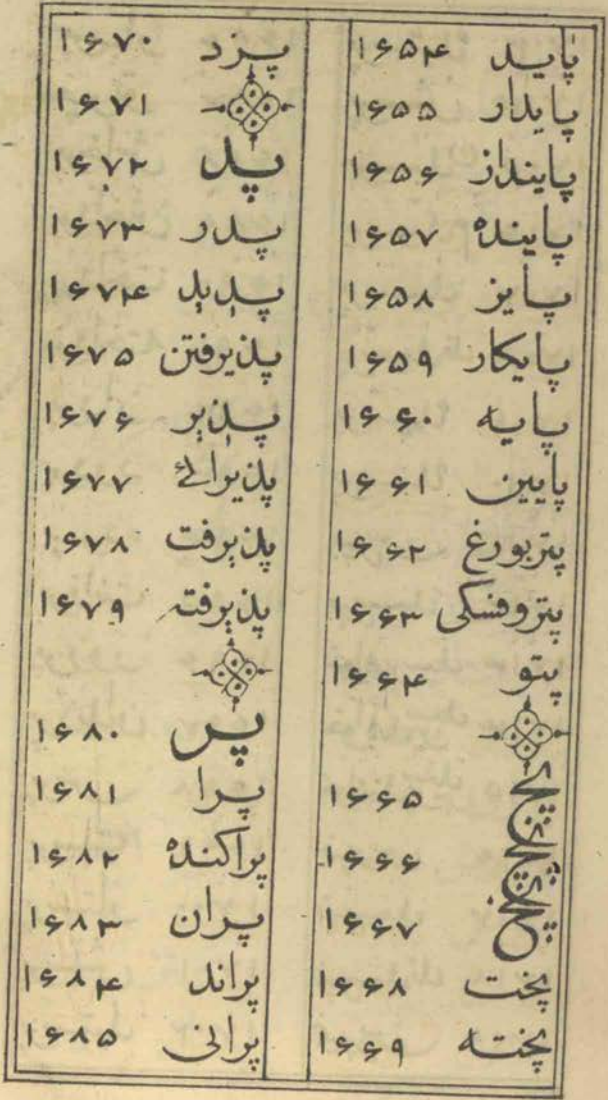 پاید ۱۶۵۴
پایدار ۱۶۵۵
پاینداز ۱۶۵۶
پاینده ۱۶۵۷
پایز ۱۶۵۸
پایکار ۱۶۵۹
پایه ۱۶۶۰
پایین ۱۶۶۱
پتربورغ ۱۶۶۲
پتروفسکی ۱۶۶۳
پتو ۱۶۶۴
پج ۱۶۶۵
پچ ۱۶۶۶
پخ ۱۶۶۷
پخت ۱۶۶۸
پخته ۱۶۶۹
پزد ۱۶۷۰
۱۶۷۱
پد ۱۶۷۲
پدر ۱۶۷۳
پدید ۱۶۷۴
پذیرفتن ۱۶۷۵
پذیر ۱۶۷۶
پذیرائے ۱۶۷۷
پذیرفت ۱۶۷۸
پذیرفته ۱۶۷۹
پر ۱۶۸۰
پرا ۱۶۸۱
پراکنده ۱۶۸۲
پران ۱۶۸۳
پراند ۱۶۸۴
پرانی ۱۶۸۵